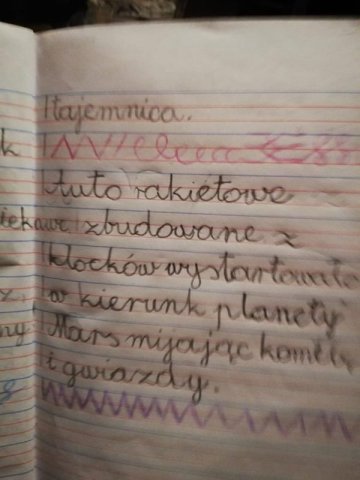 tajemnica.
Auto rakietowe
zbudowane z
klocków wystartowało
w kierunk planety
Mars mijając komety
i gwiazdy.